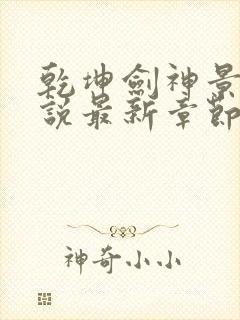 乾坤劍神景
說最新章節
神奇小小